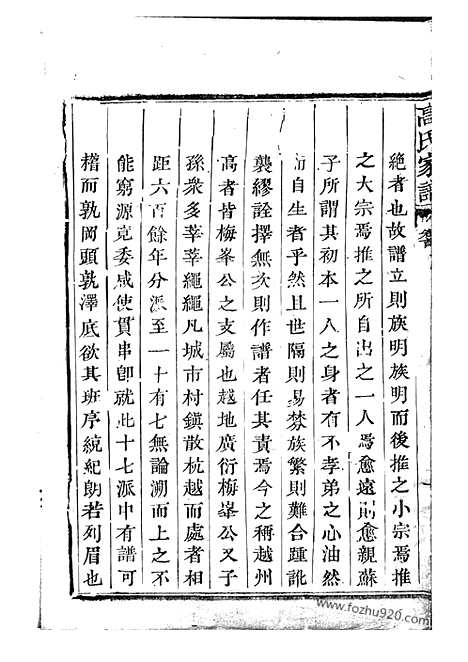 高氏家譜
絶者也故譜立則族明族明而後推之小宗焉推
之大宗焉推之所自出之一人焉愈遠而愈親蘇
子所謂其初本一人之身者有不孝弟之心油然
而自生者乎然且世隔則易棼族繁則難合踵訛
襲繆詮擇無次則作譜者任其責焉今之稱越州
高者皆梅峯公之支屬也越地廣衍梅峯公又子
孫衆多莘莘繩繩凡城市村鎮散杭越而處者相
距六百餘年分派至一十有七無論溯而上之不
能窮源竟委咸使貫串卽就此十七派中有譜可
稽而孰岡頭孰澤底欲其班序統紀朗若列眉也
www.fozhu920.com